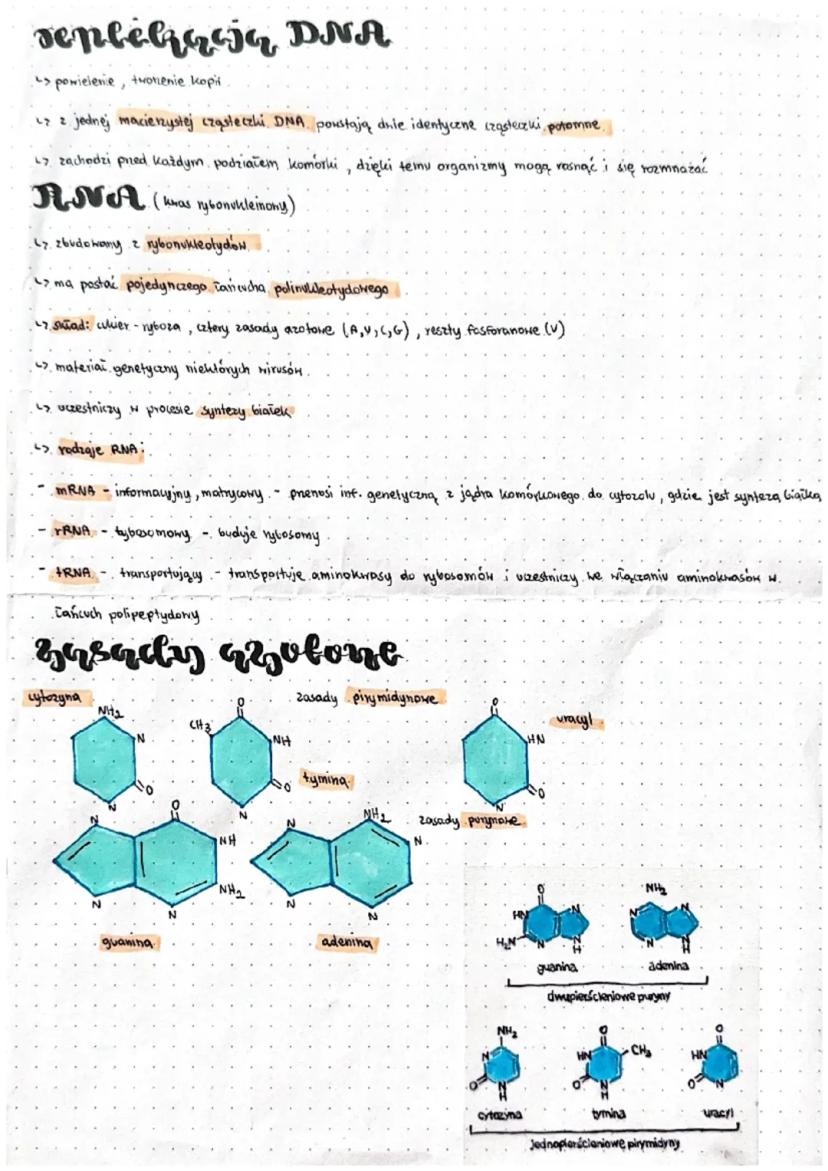 replikacja DNA
↳ powielenie, tworzenie kopii
↳ z jednej macierzystej cząsteczki DNA powstają dwie identyczne cząsteczki potomne
↳ zachodzi przed każdym podziałem komórki, dzięki temu organizmy mogą rosnąć i się rozmnażać
RNA (kwas rybonukleinowy)
↳ zbudowany z rybonukleotydów
↳ ma postać pojedynczego łańcucha polinukleotydowego
↳ skład: cukier - ryboza, cztery zasady azotowe (A,U,C,G), reszty fosforanowe (V)
↳ materiał genetyczny niektórych wirusów
↳ uczestniczy w procesie syntezy białek
↳ rodzaje RNA:
- mRNA - informacyjny, matrycowy - przenosi inf. genetyczną z jądra komórkowego do cytozolu, gdzie jest synteza białka
- rRNA - rybosomowy - buduje rybosomy
- tRNA - transportujący - transportuje aminokwasy do rybosomów i uczestniczy we włączaniu aminokwasów w
łańcuch polipeptydowy
zasady azotowe
cytozyna
zasady pirymidynowe
uracyl
NH2
N
O
N
CH3
O
NH
O
N
tymina
O
HN
O
N
zasady purynowe
N
O
NH
NH2
N
N
N
NH2
N
N
N
guanina
adenina
O
HN
N
H2N
N
N
H
NH2
N
N
N
N
H
guanina
adenina
dwupierścieniowe puryny
NH2
N
O
N
H
O
HN
CH3
O
N
H
O
HN
O
N
cytozyna
tymina
uracyl
jednopierścieniowe pirymidyny